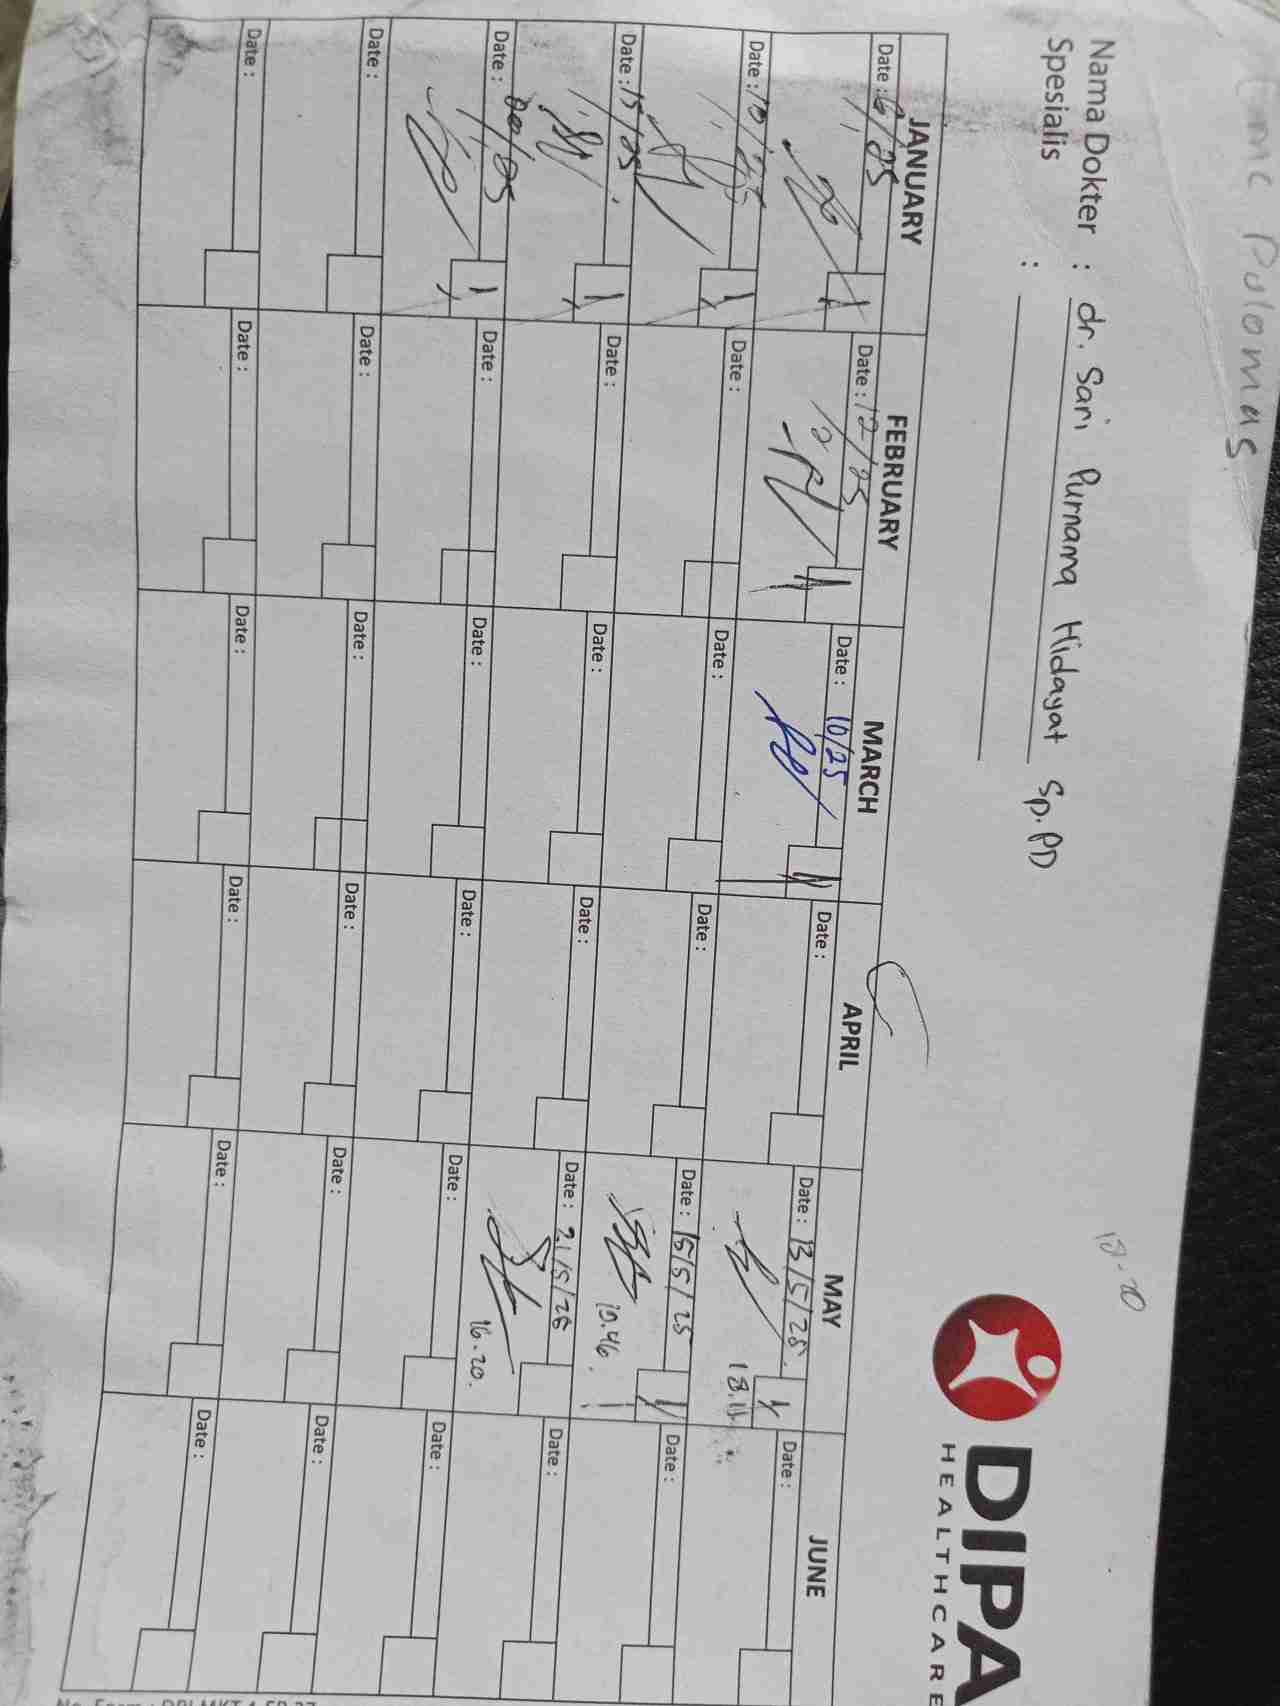 Pulomas
18.20
DIPA
HEALTHCARE
Nama Dokter : dr. Sari Purnama Hidayat Sp.PD
Spesialis :
JANUARY FEBRUARY MARCH APRIL MAY JUNE
Date : 6/25 Date : 12/25 Date : 10/25 Date : Date : 13/5/25 Date :
18.11
Date : 10/25 Date : Date : Date : Date : 15/5/25 Date :
10.46
Date : 15/25 Date : Date : Date : Date : 21/5/25 Date :
16.20.
Date : Date : Date : Date : Date : Date :
Date : Date : Date : Date : Date : Date :
Date : Date : Date : Date : Date : Date :